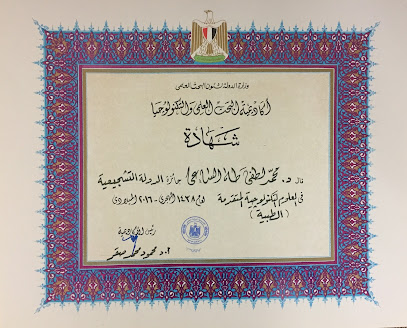 وزارة الدولة لشئون البحث العلمى
أكاديمية البحث العلمى والتكنولوجيا
شهادة
نال د. محمد لطفى طه السباعى جائزة الدولة التشجيعية
فى العلوم التكنولوجية المتقدمة لعام ١٤٣٨ الهجرى - ٢٠١٦ الميلادى
(الطبية)
رئيس الأكاديمية
أ.د محمود محمد صقر